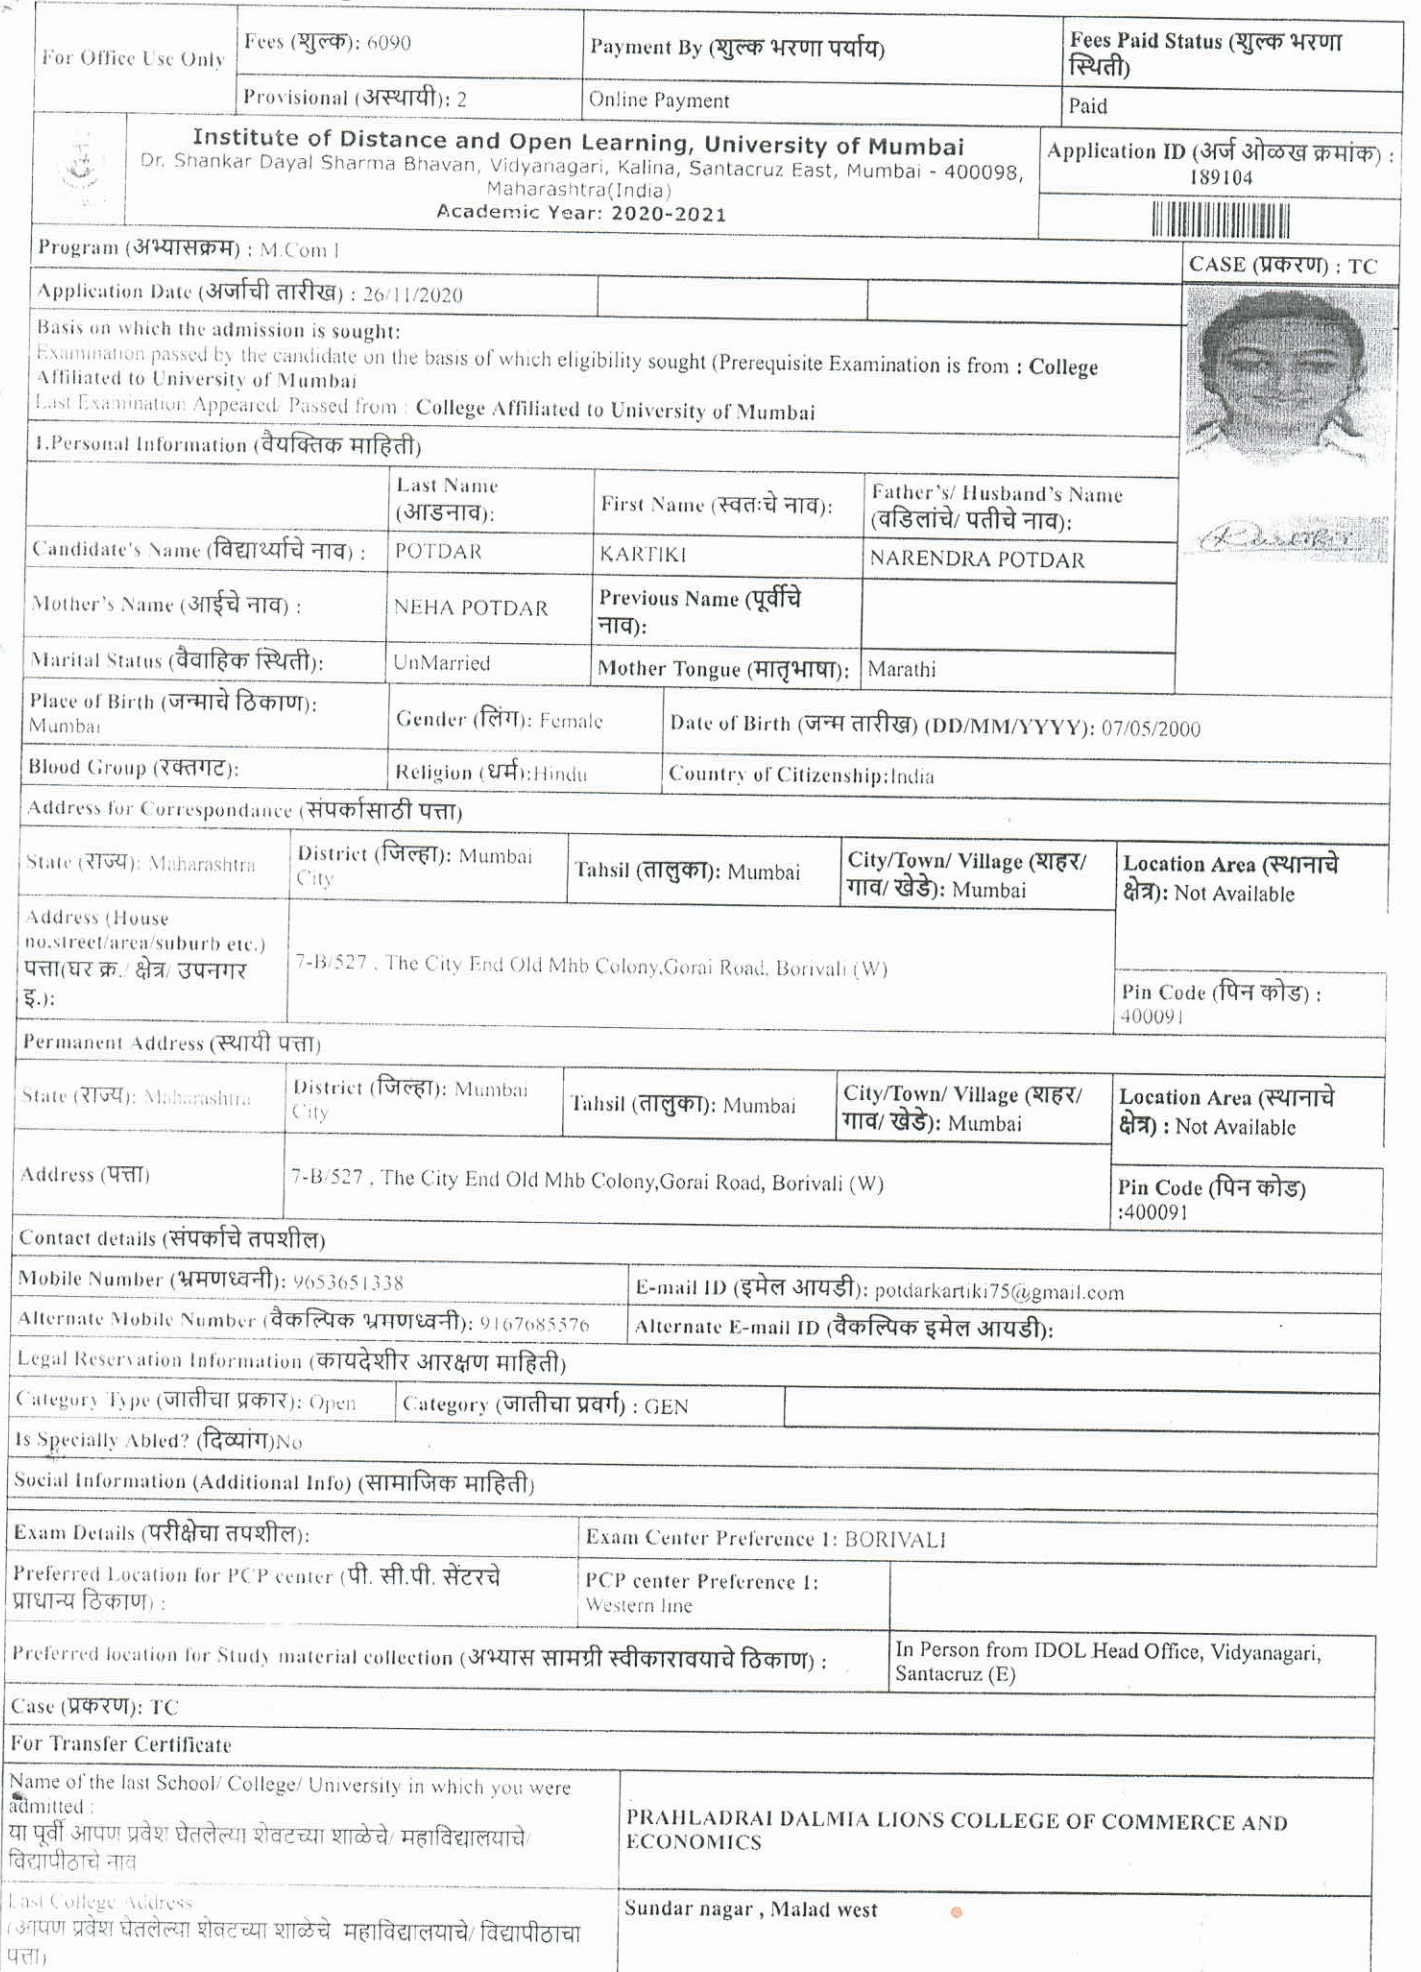 For Office Use Only
Fees (शुल्क): 6090
Payment By (शुल्क भरणा पर्याय)
Fees Paid Status (शुल्क भरणा
स्थिती)
Provisional (अस्थायी): 2
Online Payment
Paid
Institute of Distance and Open Learning, University of Mumbai
Dr. Shankar Dayal Sharma Bhavan, Vidyanagari, Kalina, Santacruz East, Mumbai - 400098,
Maharashtra(India)
Academic Year: 2020-2021
Application ID (अर्ज ओळख क्रमांक) :
189104
Program (अभ्यासक्रम) : M.Com I
CASE (प्रकरण) : TC
Application Date (अर्जाची तारीख) : 26/11/2020
Basis on which the admission is sought:
Examination passed by the candidate on the basis of which eligibility sought (Prerequisite Examination is from : College
Affiliated to University of Mumbai
Last Examination Appeared/ Passed from : College Affiliated to University of Mumbai
1.Personal Information (वैयक्तिक माहिती)
Last Name
(आडनाव):
First Name (स्वतःचे नाव):
Father's/ Husband's Name
(वडिलांचे/ पतीचे नाव):
Candidate's Name (विद्यार्थ्याचे नाव) :
POTDAR
KARTIKI
NARENDRA POTDAR
Mother's Name (आईचे नाव) :
NEHA POTDAR
Previous Name (पूर्वीचे
नाव):
Marital Status (वैवाहिक स्थिती):
UnMarried
Mother Tongue (मातृभाषा):
Marathi
Place of Birth (जन्माचे ठिकाण):
Mumbai
Gender (लिंग): Female
Date of Birth (जन्म तारीख) (DD/MM/YYYY): 07/05/2000
Blood Group (रक्तगट):
Religion (धर्म):Hindu
Country of Citizenship:India
Address for Correspondance (संपर्कासाठी पत्ता)
State (राज्य): Maharashtra
District (जिल्हा): Mumbai
City
Tahsil (तालुका): Mumbai
City/Town/ Village (शहर/
गाव/ खेडे): Mumbai
Location Area (स्थानाचे
क्षेत्र): Not Available
Address (House
no.street/area/suburb etc.)
पत्ता(घर क्र./ क्षेत्र/ उपनगर
इ.):
7-B/527 , The City End Old Mhb Colony,Gorai Road, Borivali (W)
Pin Code (पिन कोड) :
400091
Permanent Address (स्थायी पत्ता)
State (राज्य): Maharashtra
District (जिल्हा): Mumbai
City
Tahsil (तालुका): Mumbai
City/Town/ Village (शहर/
गाव/ खेडे): Mumbai
Location Area (स्थानाचे
क्षेत्र) : Not Available
Address (पत्ता)
7-B/527 , The City End Old Mhb Colony,Gorai Road, Borivali (W)
Pin Code (पिन कोड)
:400091
Contact details (संपर्काचे तपशील)
Mobile Number (भ्रमणध्वनी): 9653651338
E-mail ID (इमेल आयडी): potdarkartiki75@gmail.com
Alternate Mobile Number (वैकल्पिक भ्रमणध्वनी): 9167685576
Alternate E-mail ID (वैकल्पिक इमेल आयडी):
Legal Reservation Information (कायदेशीर आरक्षण माहिती)
Category Type (जातीचा प्रकार): Open
Category (जातीचा प्रवर्ग) : GEN
Is Specially Abled? (दिव्यांग)No
Social Information (Additional Info) (सामाजिक माहिती)
Exam Details (परीक्षेचा तपशील):
Exam Center Preference 1: BORIVALI
Preferred Location for PCP center (पी. सी.पी. सेंटरचे
प्राधान्य ठिकाण) :
PCP center Preference 1:
Western line
Preferred location for Study material collection (अभ्यास सामग्री स्वीकारावयाचे ठिकाण) :
In Person from IDOL Head Office, Vidyanagari,
Santacruz (E)
Case (प्रकरण): TC
For Transfer Certificate
Name of the last School/ College/ University in which you were
admitted :
या पूर्वी आपण प्रवेश घेतलेल्या शेवटच्या शाळेचे/ महाविद्यालयाचे/
विद्यापीठाचे नाव
PRAHLADRAI DALMIA LIONS COLLEGE OF COMMERCE AND
ECONOMICS
Last College Address
(आपण प्रवेश घेतलेल्या शेवटच्या शाळेचे महाविद्यालयाचे/ विद्यापीठाचा
पत्ता)
Sundar nagar , Malad west